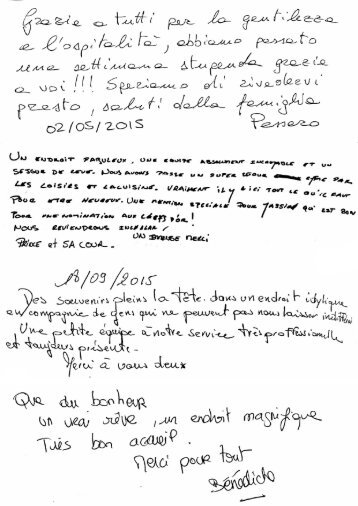 Grazie a tutti per la gentilezza
e l'ospitalità, abbiamo passato
una settimana stupenda grazie
a voi!!! Speriamo di rivedervi
presto, saluti dalla famiglia
02/05/2015 Pessaro
UN ENDROIT FABULEUX, UNE EQUIPE ABSOLUMENT INCROYABLE ET UN
SEJOUR DE REVE. NOUS AVONS PASSE UN SUPER SEJOUR ENTRE PAR
LES LOISIRS ET LA CUISINE. VRAIMENT IL Y A ICI TOUT CE QU'IL FAUT
POUR ETRE HEUREUX. UNE MENTION SPECIALE POUR YASSINE QUI EST BON
POUR UNE NOMINATION AUX !
NOUS REVIENDRONS INCHALLAH!
UN ENORME MERCI
ET SA COUR.
18/09/2015
Des souvenirs pleins la tête. dans un endroit idylique
en compagnie de gens qui ne peuvent pas nous laisser indifférent
Une petite équipe à notre service très professionnelle
et toujours présente.
Merci à vous deux
Que du bonheur
un vrai rêve, un endroit magnifique
Très bon accueil.
Merci pour tout
Bénédicte